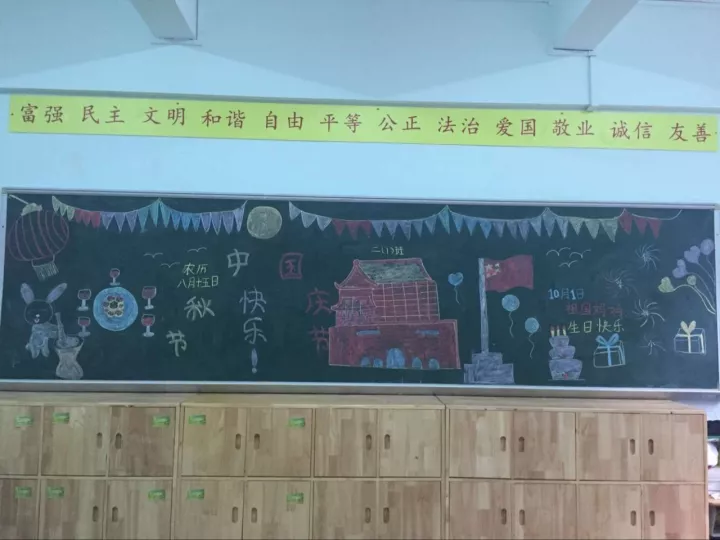 富强 民主 文明 和谐 自由 平等 公正 法治 爱国 敬业 诚信 友善
二(1)班
农历
八月十五日
中秋节
快乐!
国庆节
10月1日
祖国妈妈
生日快乐